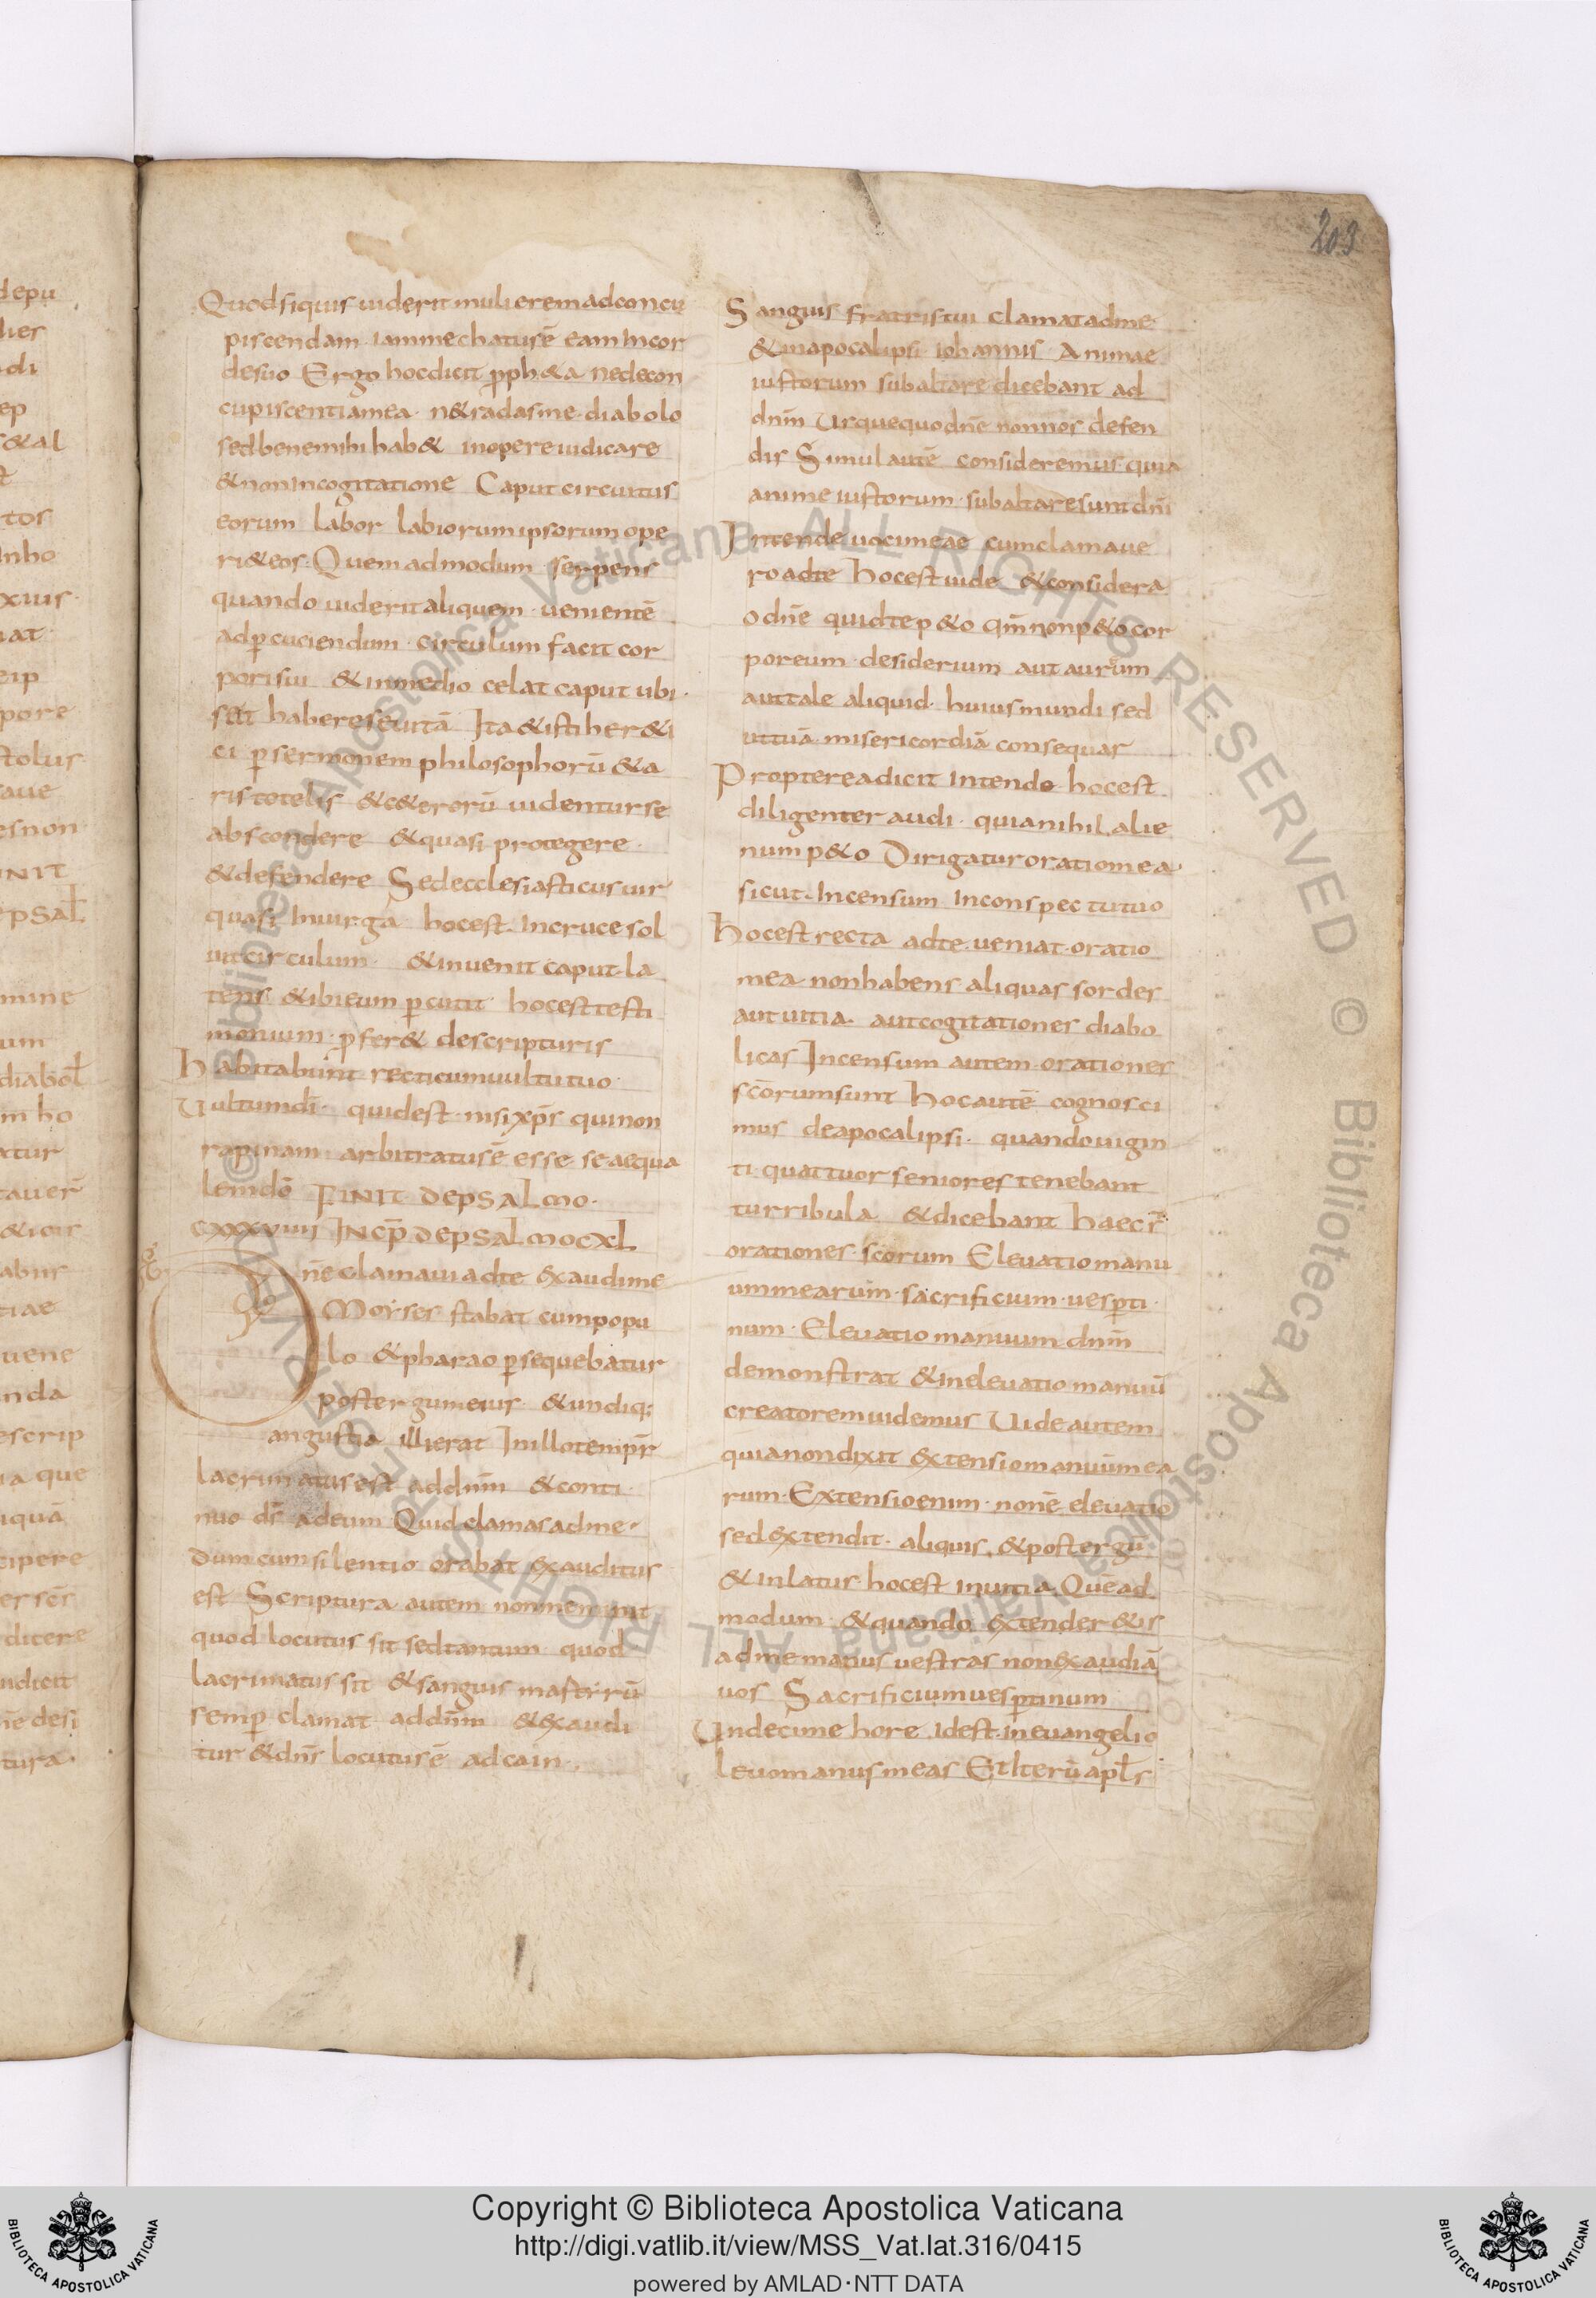 depu
lier
di
ep
&al
t
tos
inho
xuis
uat
eip
pore
stolus
aue
esnon
INIT
epsal̄
mine
um
diabol̄
m ho
atur
tauer̄
&icis
abus
tiae
uene
nda
escrip
ia que
iquā
cipere
er sēs
ditere
ndicit
nē desi
tura
203
Quodsiquis uiderit mulierem adconcu
piscendam iammechatusē eam Incor
desuo Ergo hocdicit pph&a nedecon
cupiscentiamea n&radasme diabolo
sedbenemihi hab& inopere iudicare
&nonIncogitatione Caput circuitus
eorum labor labiorumipsorum ope
ri&eos. Quemadmodum serpens
quando uiderit aliquem uenientē
adpcuciendum circulum facit cor
porisui &inmedio celat caput ubi
scit habere seuitā Ita&isti her&i
ci psermonem philosophorū &a
ristotelis &c&erorū uidenturse
abscondere &quasi protegere
&defendere Sedecclesiasticus uir
quasi Inuirga hocest Incruce sol
uit circulum &inuenit caput la
tens &ibieum pcutit hocest testi
monium pfer& descripturis
Habitabunt recticumuultu tuo
Uultumdī quidest nisi xp̄s quinon
rapinam arbitratusē esse seaequa
lemdō FINIT DEPSALMO
CXXXVIIII INCP̄ DEPSALMOCXL
D nē clamaui adte &xaudime
Moyses stabat cumpopu
lo &pharao psequebatur
postergumeius &undiq;
angustia illi erat Inillotempr̄
lacrimatusest addnm̄ &conti
nuo ds̄ adeum Quid clamasadme
dumcumsilentio orabat &xauditus
est Scriptura autem nonmeminit
quod locutus sit sedtantum quod
lacrimatus sit &sanguis mastirū
semp clamat addnm̄ &&xaudi
tur &dns̄ locutusē adcain
Sanguis fratris tui clamatadme
&inapocalipsi iohannis Animae
iustorum subaltare dicebant ad
dnm̄ Usquequodnē nonnos defen
dis Simul autē consideremus quia
anime iustorum subaltaresuntdnī
Intende uocimeae cumclamaue
ro adte hocest uide &considera
o dnē quidtep&o qm̄nonp&ocor
poreum desiderium aut aurum
auttale aliquid huiusmundi sed
uttuā misericordiā consequar
Propterea dicit Intende hocest
diligenter audi quianihil alie
num p&o Dirigaturoratiomea
sicut Incensum Inconspectutuo
Hocest recta adte ueniat oratio
mea nonhabens aliquas sordes
aut uitia autcogitationes diabo
licas Incensum autem orationes
scōrumsunt Hocautē cognosci
mus deapocalipsi quandouigin
ti quattuor seniores tenebant
turribula &dicebant haec
orationes scōrum Eleuatiomanu
ummearum sacrificium uesperti
num Eleuatio manuum dnm̄
demonstrat &ineleuatio manuū
creatoremuidemus Uide autem
quianondixit &xtensiomanuūmea
rum Extensioenim nonē eleuatio
sed&xtendit aliquis &postergū
&inlatus hocest inuitia Quēad
modum &quando &xtender&is
admemanus uestras non&xaudiā
uos Sacrificiumuesptinum
Undecime hore idest Ineuangelio
leuomanusmeas EtIterū apl̄s
Copyright © Biblioteca Apostolica Vaticana
http://digi.vatlib.it/view/MSS_Vat.lat.316/0415
powered by AMLAD·NTT DATA
BIBLIOTECA APOSTOLICA VATICANA
BIBLIOTECA APOSTOLICA VATICANA